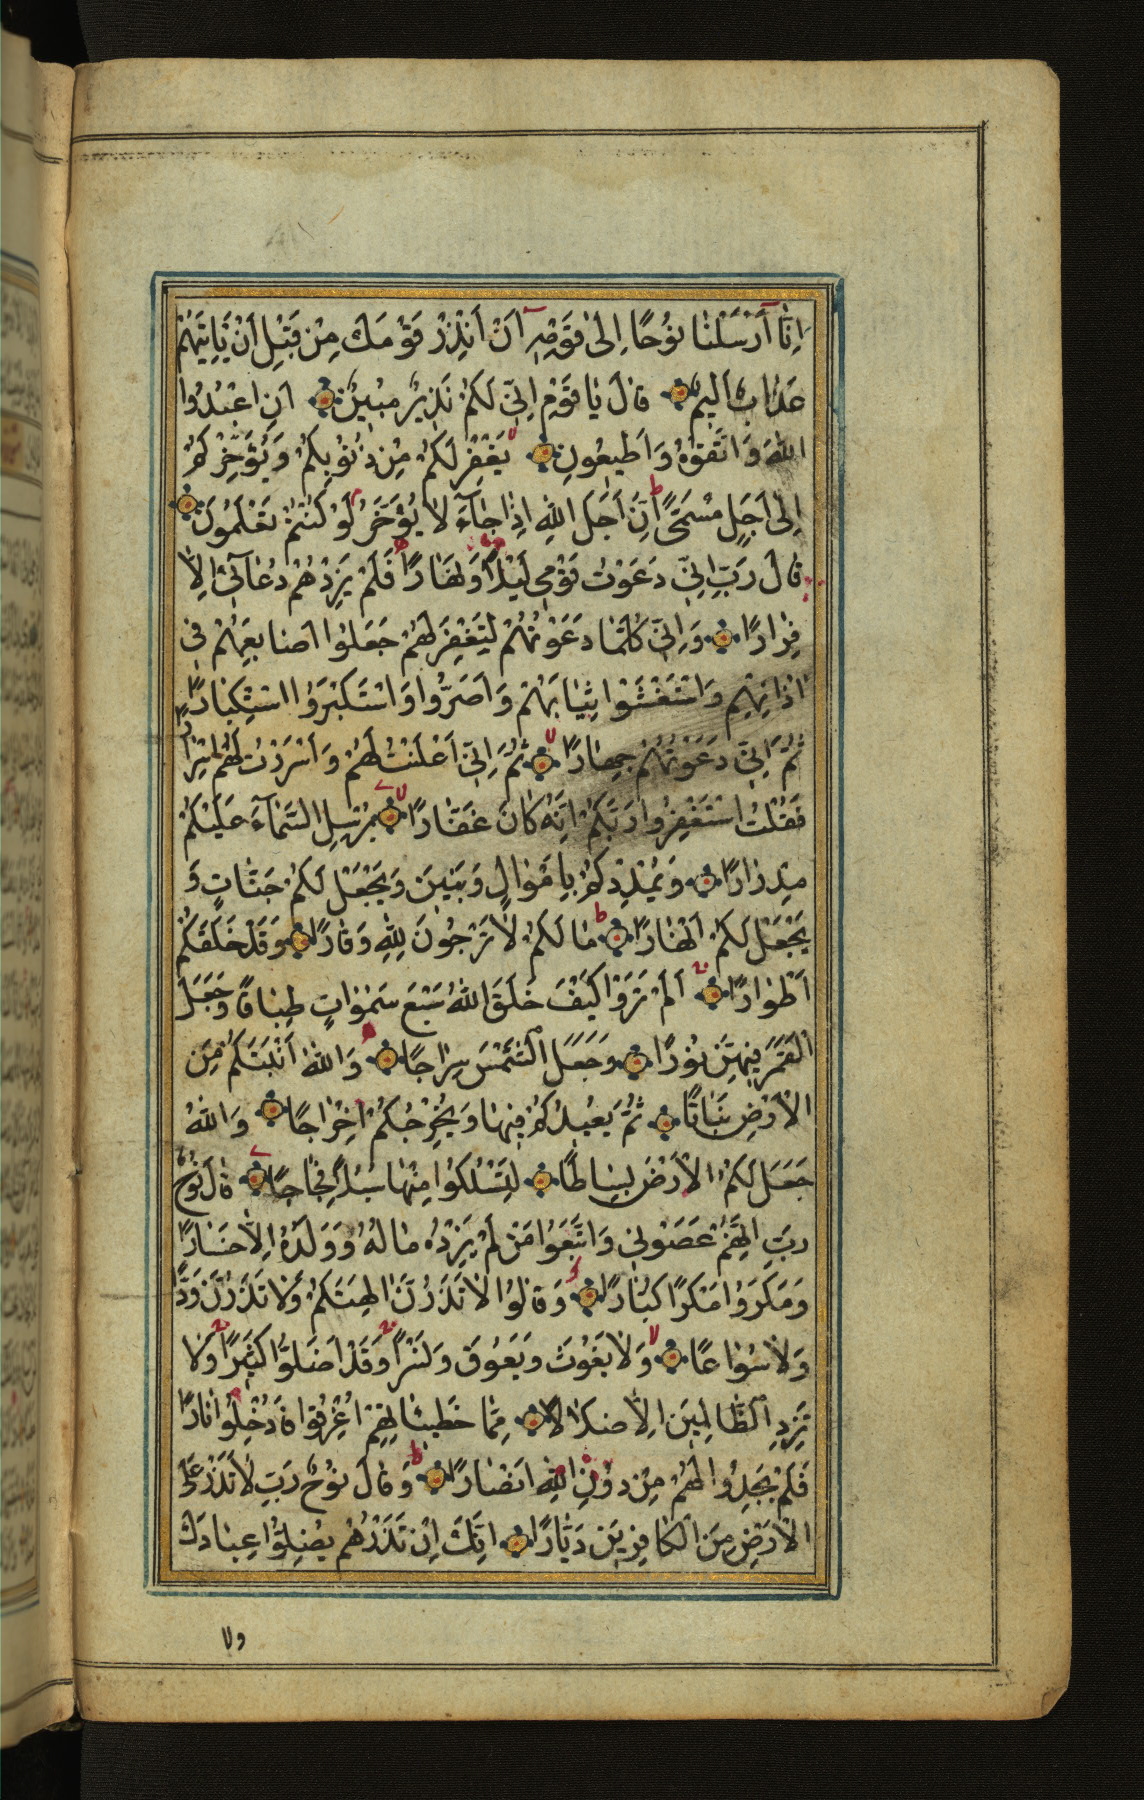 اِنَّٓا اَرْسَلْنٰا نُوحًا اِلىٰ قَوْمِهٖٓ اَنْ اَنْذِرْ قَوْمَكَ مِنْ قَبْلِ اَنْ يَاْتِيَهُمْ
عَذٰابٌ اَلِيمٌ قٰالَ يٰا قَوْمِ اِنّٖي لَكُمْ نَذِيرٌ مُبِينٌ اَنِ اعْبُدُوا
اللّٰهَ وَاتَّقُوهُ وَاَطِيعُونِ يَغْفِرْ لَكُمْ مِنْ ذُنُوبِكُمْ وَيُؤَخِّرْكُمْ
اِلىٰ اَجَلٍ مُسَمًّى اِنَّ اَجَلَ اللّٰهِ اِذٰا جٰٓاءَ لٰا يُؤَخَّرُ لَوْ كُنْتُمْ تَعْلَمُونَ
قٰالَ رَبِّ اِنّٖي دَعَوْتُ قَوْمٖي لَيْلًا وَنَهٰارًا فَلَمْ يَزِدْهُمْ دُعٰٓائٖي اِلّٰا
فِرٰارًا وَاِنّٖي كُلَّمٰا دَعَوْتُهُمْ لِتَغْفِرَ لَهُمْ جَعَلُوا اَصٰابِعَهُمْ فٖي
اٰذٰانِهِمْ وَاسْتَغْشَوْا ثِيٰابَهُمْ وَاَصَرُّوا وَاسْتَكْبَرُوا اسْتِكْبٰارًا
ثُمَّ اِنّٖي دَعَوْتُهُمْ جِهٰارًا ثُمَّ اِنّٖي اَعْلَنْتُ لَهُمْ وَاَسْرَرْتُ لَهُمْ اِسْرٰارًا
فَقُلْتُ اسْتَغْفِرُوا رَبَّكُمْ اِنَّهُ كٰانَ غَفّٰارًا يُرْسِلِ السَّمٰٓاءَ عَلَيْكُمْ
مِدْرٰارًا وَيُمْدِدْكُمْ بِاَمْوٰالٍ وَبَنِينَ وَيَجْعَلْ لَكُمْ جَنّٰاتٍ وَ
يَجْعَلْ لَكُمْ اَنْهٰارًا مٰا لَكُمْ لٰا تَرْجُونَ لِلّٰهِ وَقٰارًا وَقَدْ خَلَقَكُمْ
اَطْوٰارًا اَلَمْ تَرَوْا كَيْفَ خَلَقَ اللّٰهُ سَبْعَ سَمٰوٰاتٍ طِبٰاقًا وَجَعَلَ
الْقَمَرَ فِيهِنَّ نُورًا وَجَعَلَ الشَّمْسَ سِرٰاجًا وَاللّٰهُ اَنْبَتَكُمْ مِنَ
الْاَرْضِ نَبٰاتًا ثُمَّ يُعِيدُكُمْ فِيهٰا وَيُخْرِجُكُمْ اِخْرٰاجًا وَاللّٰهُ
جَعَلَ لَكُمُ الْاَرْضَ بِسٰاطًا لِتَسْلُكُوا مِنْهٰا سُبُلًا فِجٰاجًا قٰالَ نُوحٌ
رَبِّ اِنَّهُمْ عَصَوْنٖي وَاتَّبَعُوا مَنْ لَمْ يَزِدْهُ مٰالُهُ وَوَلَدُهُ اِلّٰا خَسٰارًا
وَمَكَرُوا مَكْرًا كُبّٰارًا وَقٰالُوا لٰا تَذَرُنَّ اٰلِهَتَكُمْ وَلٰا تَذَرُنَّ وَدًّا
وَلٰا سُوٰاعًا وَلٰا يَغُوثَ وَيَعُوقَ وَنَسْرًا وَقَدْ اَضَلُّوا كَثِيرًا وَلٰا
تَزِدِ الظّٰالِمِينَ اِلّٰا ضَلٰالًا مِمّٰا خَطِيئٰاتِهِمْ اُغْرِقُوا فَاُدْخِلُوا نٰارًا
فَلَمْ يَجِدُوا لَهُمْ مِنْ دُونِ اللّٰهِ اَنْصٰارًا وَقٰالَ نُوحٌ رَبِّ لٰا تَذَرْ عَلَى
الْاَرْضِ مِنَ الْكٰافِرِينَ دَيّٰارًا اِنَّكَ اِنْ تَذَرْهُمْ يُضِلُّوا عِبٰادَكَ
ولا